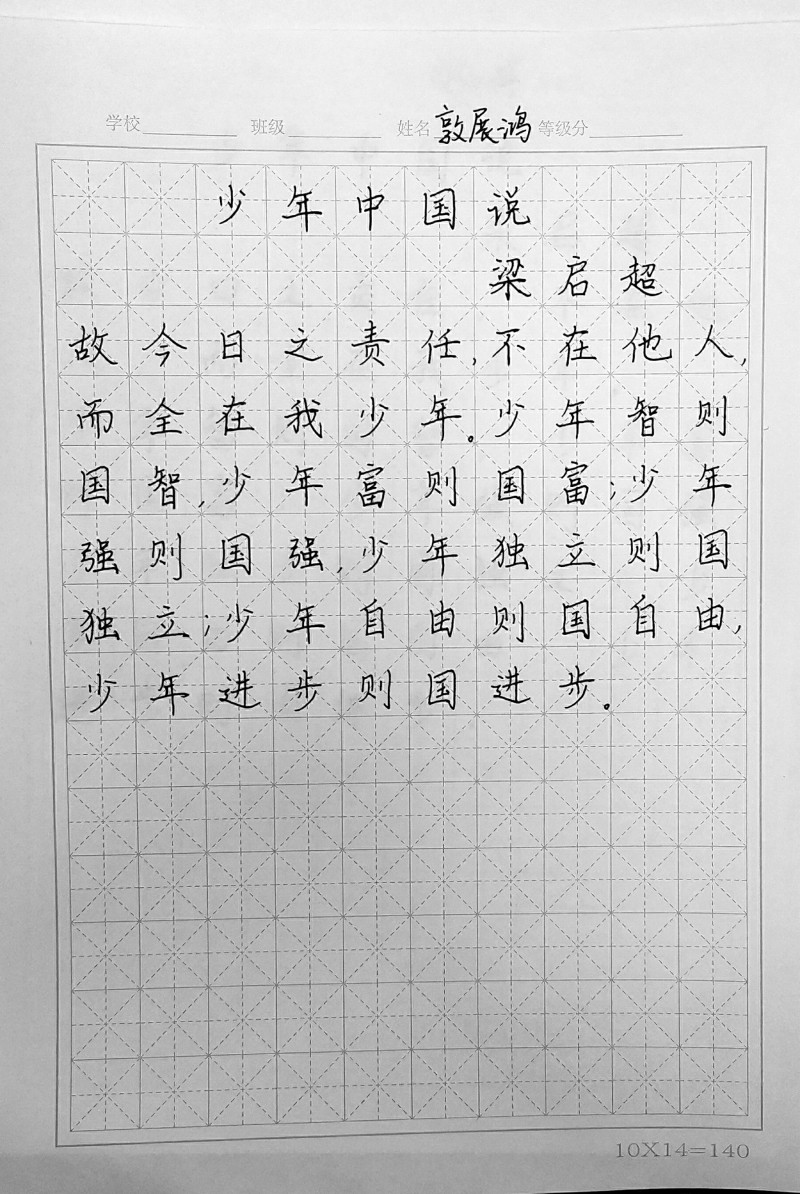 学校 班级 姓名 敦展鸿 等级分
少年中国说
梁启超
故今日之责任,不在他人,
而全在我少年。少年智则
国智,少年富则国富;少年
强则国强,少年独立则国
独立;少年自由则国自由,
少年进步则国进步。
10X14=140